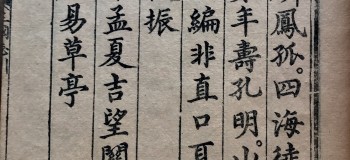 鳳孤。四海徒
年壽孔明。山
編非直口耳
振
孟夏吉望關
易草亭